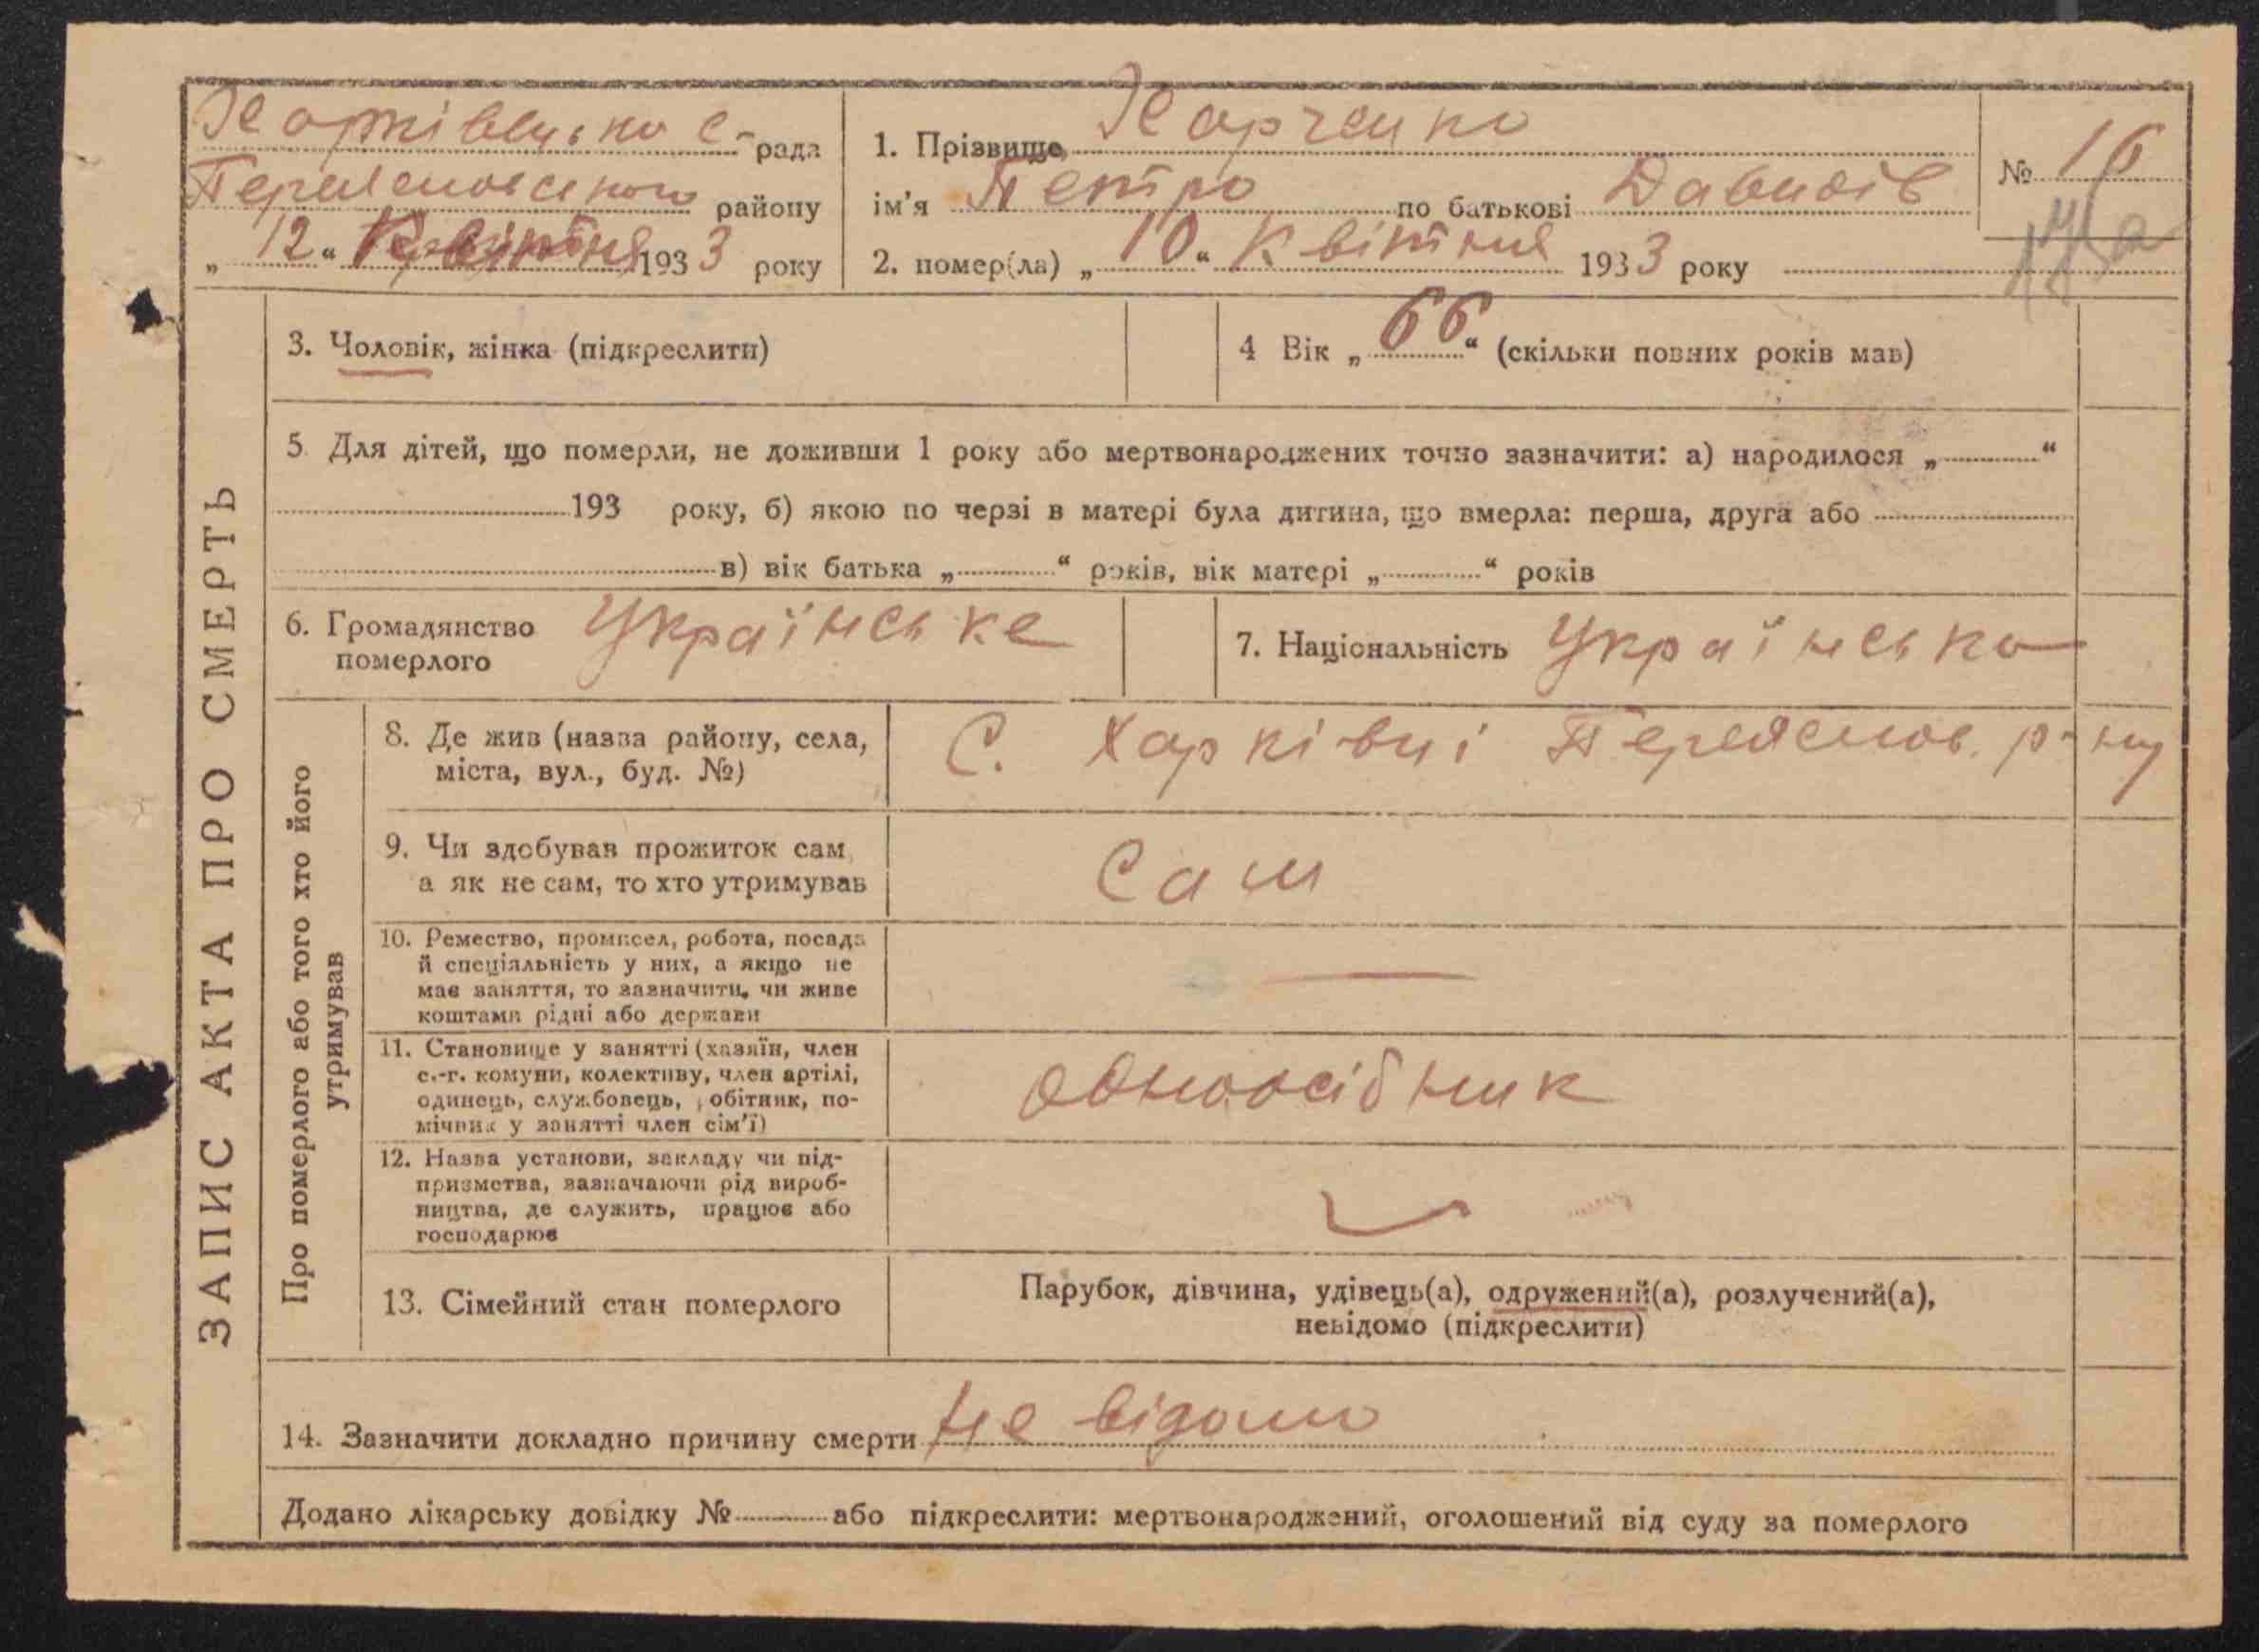 Харківецька с-рада
Переяславського району
„12“ Квітня 1933 року
1. Прізвище Харченко
ім'я Петро по батькові Давидів
№ 16
17а
2. помер(ла) „10“ Квітня 1933 року
ЗАПИС АКТА ПРО СМЕРТЬ
3. Чоловік, жінка (підкреслити)
4 Вік „66“ (скільки повних років мав)
5 Для дітей, що померли, не доживши 1 року або мертвонароджених точно зазначити: а) народилося „ “
193 року, б) якою по черзі в матері була дитина, що вмерла: перша, друга або
в) вік батька „ “ років, вік матері „ “ років
6. Громадянство
померлого
Українське
7. Національність Українська
Про померлого або того хто його
утримував
8. Де жив (назва району, села,
міста, вул., буд. №)
С. Харківці Переяслов. р-ну
9. Чи здобував прожиток сам,
а як не сам, то хто утримував
Сам
10. Ремество, промисел, робота, посада
й спеціяльність у них, а якщо не
має заняття, то зазначити, чи живе
коштами рідні або держави
—
11. Становище у занятті (хазяїн, член
с.-г. комуни, колективу, член артілі,
одинець, службовець, обітник, по-
мічник у занятті член сім'ї)
одноосібник
12. Назва установи, закладу чи під-
приємства, зазначаючи рід вироб-
ництва, де служить, працює або
господарює
13. Сімейний стан померлого
Парубок, дівчина, удівець(а), одружений(а), розлучений(а),
невідомо (підкреслити)
14. Зазначити докладно причину смерти Не відомо
Додано лікарську довідку № або підкреслити: мертвонароджений, оголошений від суду за померлого